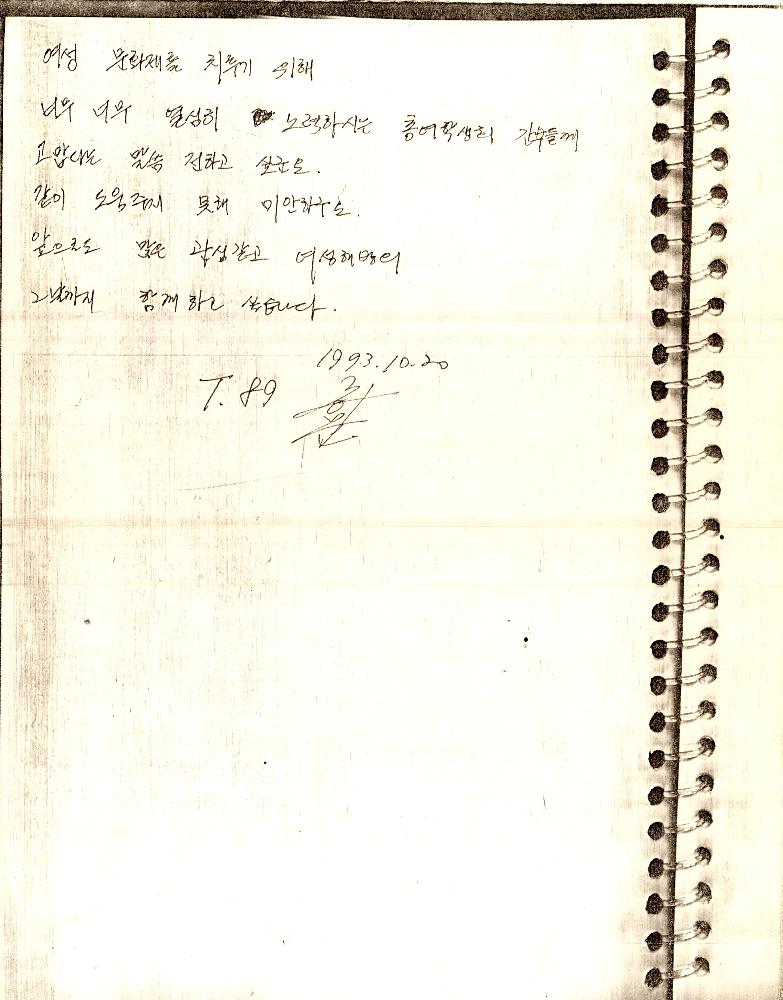 여성 문화제를 치루기 위해
너무 너무 열심히 노력하시는 총여학생회 간부들께
고맙다는 말씀 전하고 싶군요.
같이 도움주지 못해 미안하구요.
앞으로도 많은 관심갖고 여성해방의
그날까지 함께 하고 싶습니다.
1993.10.20
T. 89